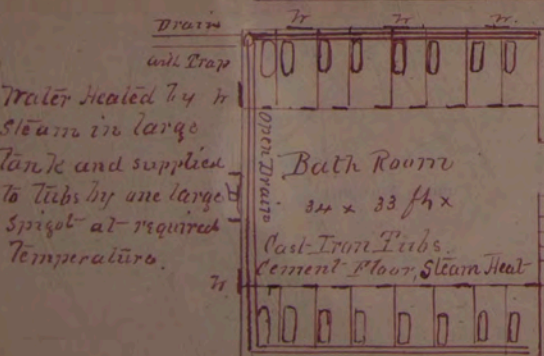 Drain
with Trap
W
W
W.
Water Heated by
Steam in large
Tank and supplied
to Tubs by one large
Spigot at required
Temperature.
W
D
W.
Open Drain
Bath Room
34 x 33 ft x
Cast Iron Tubs.
Cement Floor, Steam Heat